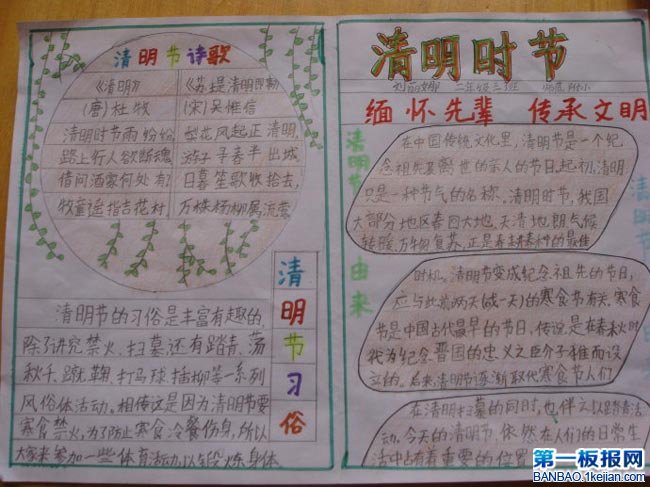 清明节诗歌
《清明》
(唐)杜牧
清明时节雨纷纷
路上行人欲断魂
借问酒家何处有
牧童遥指杏花村
《苏堤清明即事》
(宋)吴惟信
梨花风起正清明,
游子寻春半出城
日暮笙歌收拾去,
万株杨柳属流莺
清明节习俗
清明节的习俗是丰富有趣的,
除了讲究禁火、扫墓,还有踏青、荡
秋千、蹴鞠、打马球、插柳等一系列
风俗体活动。相传这是因为清明节要
寒食禁火,为了防止寒食冷餐伤身,所以
大家来参加一些体育活动,以锻炼身体
清明时节
二年级三班
缅怀先辈 传承文明
清明节由来
在中国传统文化里,清明节是一个纪
念祖先及离世的亲人的节日。起初,清明
只是一种节气的名称,清明时节,我国
大部分地区春回大地,天清地朗,气候
转暖,万物复苏,正是春耕春种的最佳
时机。清明节变成纪念祖先的节日,
应与此前两天(或一天)的寒食节有关,寒食
节是中国古代最早的节日,传说是在春秋时
代为纪念晋国的忠义之臣介子推而设
立的。后来清明节逐渐取代寒食节,人们
在清明扫墓的同时,也伴之以踏青活
动。今天的清明节,依然在人们的日常生
活中占有着重要的位置
清明节
第一板报网
BANBAO.1kejian.com